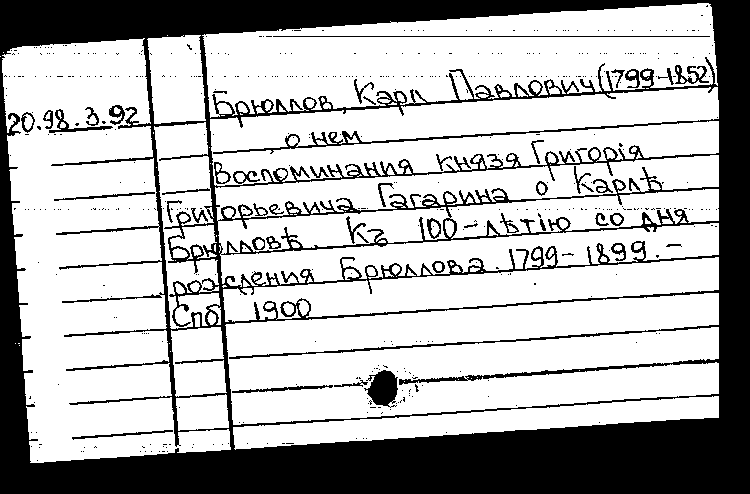 Брюллов, Карл Павлович (1799-1852)
20.98.3.92
, о нем
Воспоминания князя Григорія
Григорьевича Гагарина о Карлѣ
Брюлловѣ. Къ 100-лѣтію со дня
рождения Брюллова. 1799-1899.-
Спб. 1900